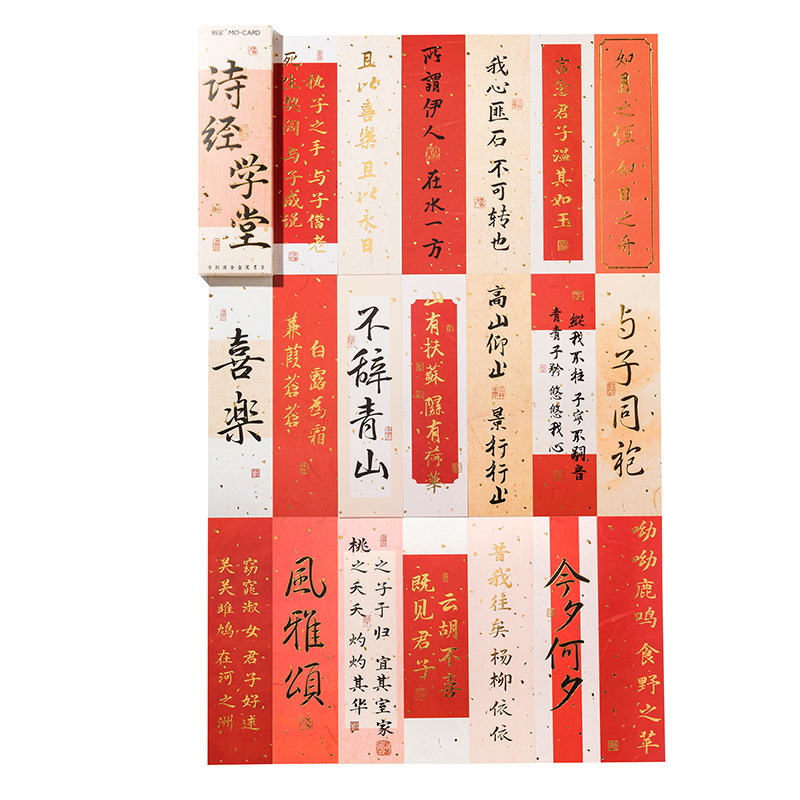 MO·CARD
诗经
学堂
死生契阔 与子成说
执子之手 与子偕老
且以喜樂 且以永日
所謂伊人 在水一方
我心匪石 不可转也
言念君子温其如玉
如月之恒 如日之升
喜樂
蒹葭蒼蒼
白露為霜
不辞青山
山有扶蘇 隰有荷華
高山仰止 景行行止
青青子衿 悠悠我心
縱我不往 子宁不嗣音
与子同袍
关关雎鸠 在河之洲
窈窕淑女 君子好逑
風雅頌
桃之夭夭 灼灼其华
之子于归 宜其室家
既见君子
云胡不喜
昔我往矣杨柳依依
今夕何夕
呦呦鹿鸣 食野之苹